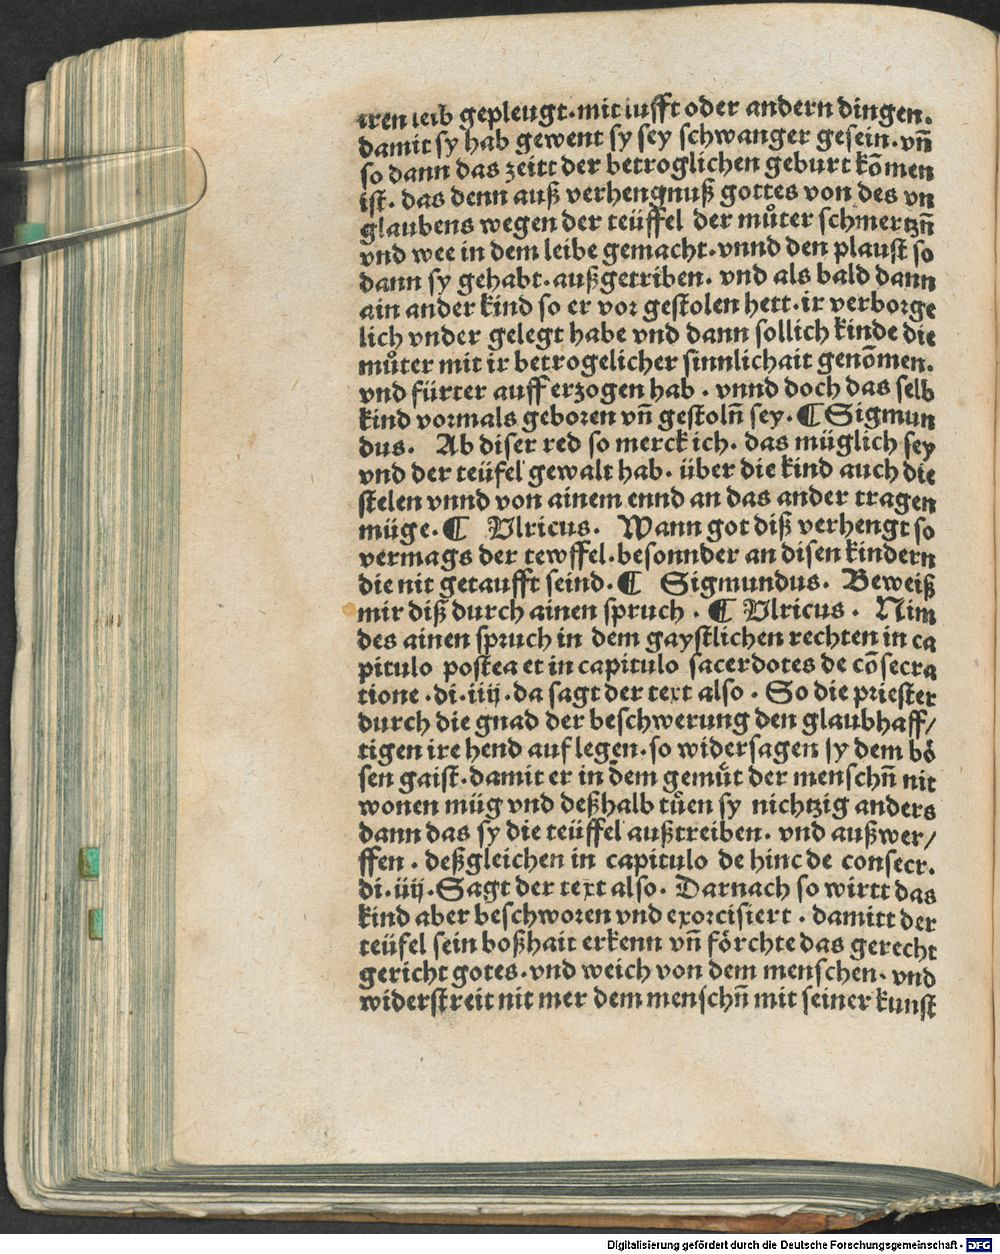 iren leib gepleugt·mit lufft oder andern dingen.
damit sy hab gewent sy sey schwanger gesein·vn̄
so dann das zeitt der betroglichen geburt kōmen
ist·das denn auß verhengnuß gottes von des vn
glaubens wegen der teüffel der mu̇ter schmertzn̄
vnd wee in dem leibe gemacht·vnnd den plaust so
dann sy gehabt·außgetriben·vnd als bald dann
ain ander kind so er vor gestolen hett·ir verborge
lich vnder gelegt habe vnd dann sollich kinde die
mu̇ter mit ir betrogelicher sinnlichait genōmen.
vnd fürter auff erzogen hab·vnnd doch das selb
kind vormals geboren vn̄ gestoln̄ sey·¶ Sigmun
dus. Ab diser red so merck ich·das müglich sey
vnd der teüfel gewalt hab·über die kind auch die
stelen vnnd von ainem ennd an das ander tragen
müge·¶ Vlricus. Wann got diß verhengt so
vermags der tewffel·besonnder an disen kindern
die nit getaufft seind·¶ Sigmundus. Beweiß
mir diß durch ainen spruch·¶ Vlricus. Nim
des ainen spruch in dem gaystlichen rechten in ca
pitulo postea et in capitulo sacerdotes de cōsecra
tione·di·iiij·da sagt der text also·So die priester
durch die gnad der beschwerung den glaubhaff/
tigen ire hend auf legen·so widersagen sy dem bö
sen gaist·damit er in dem gemu̇t der menschn̄ nit
wonen müg vnd deßhalb tu̇en sy nichtzig anders
dann das sy die teüffel außtreiben·vnd außwer/
ffen·deßgleichen in capitulo de hinc de consecr.
di·iiij·Sagt der text also·Darnach so wirtt das
kind aber beschworen vnd exorcisiert·damitt der
teüfel sein boßhait erkenn vn̄ förchte das gerecht
gericht gotes·vnd weich von dem menschen·vnd
widerstreit nit mer dem menschn̄ mit seiner kunst
Digitalisierung gefördert durch die Deutsche Forschungsgemeinschaft - DFG